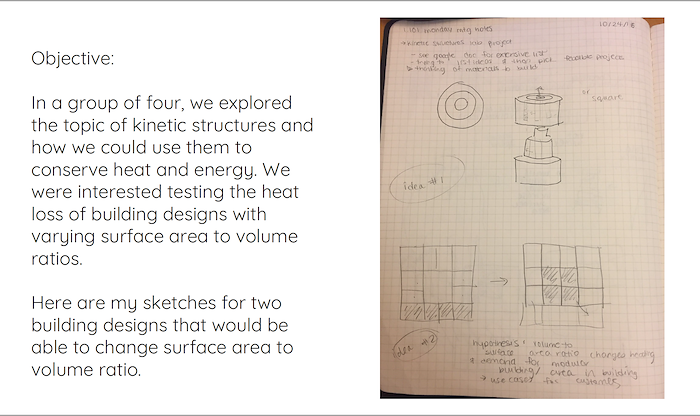 Objective:
In a group of four, we explored
the topic of kinetic structures and
how we could use them to
conserve heat and energy. We
were interested testing the heat
loss of building designs with
varying surface area to volume
ratios.
Here are my sketches for two
building designs that would be
able to change surface area to
volume ratio.
monday mtg notes
→ kinetic structures project
- google doc for extensive list
list ideas & then pick feasible projects
thinking of materials to build
or
square
idea #1
idea #2
hypothesis: volume to
surface area ratio changes heating
demand for modular
building/ area in building
→ use cases for